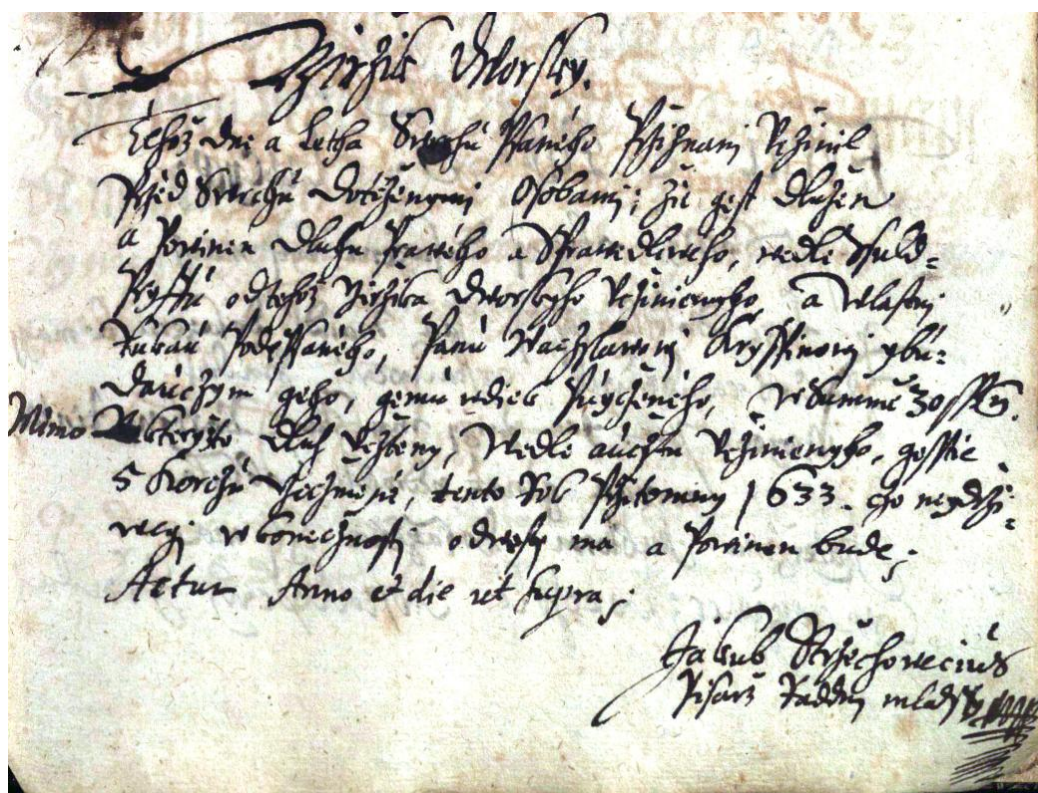 Jiržik Dworsky.
Tehož dne a Letha Swrchu Psaného Pržiznani Učzinil
Pržed Swrchu dotčzenymi Osobami; že gest dlužen
a Powinen dluhu Prawého a Sprawedliwého, wedle Ssuld=
Pryffu od tehož Jiržika dworskyho Učzinienyho, a wlastni
Rukau Podepsaného, Panu Waczlawowi Kryspinowi y bu=
dauczym geho, gemu w diek Pujczeného, w Summě 30 ssk.
Mimo kteryžto dluh Uržceny, Wedle aucztu Učzinienyho, gesstie
5 Korczu Geczmene, tento Rok Pržitomny 1633. čo neydrži=
wegi w konečznosti odwesti ma a Powinen bude;
Actum Anno et die ut supra;
Jakub Stržechowecius
Pisarž Raddni mladssy